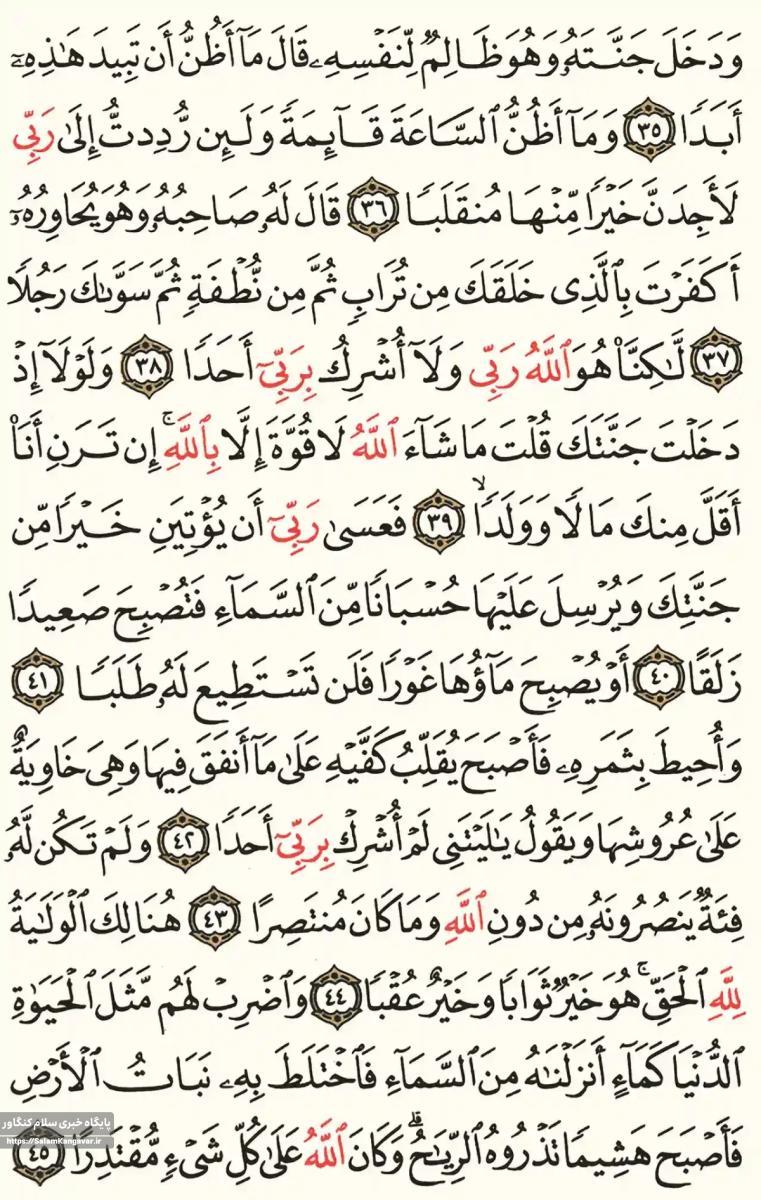 وَدَخَلَ جَنَّتَهُۥ وَهُوَ ظَالِمٌ لِّنَفْسِهِۦ قَالَ مَآ أَظُنُّ أَن تَبِيدَ هَـٰذِهِۦٓ
أَبَدًا ٣٥ وَمَآ أَظُنُّ ٱلسَّاعَةَ قَآئِمَةً وَلَئِن رُّدِدتُّ إِلَىٰ رَبِّى
لَأَجِدَنَّ خَيْرًا مِّنْهَا مُنقَلَبًا ٣٦ قَالَ لَهُۥ صَاحِبُهُۥ وَهُوَ يُحَاوِرُهُۥٓ
أَكَفَرْتَ بِٱلَّذِى خَلَقَكَ مِن تُرَابٍ ثُمَّ مِن نُّطْفَةٍ ثُمَّ سَوَّىٰكَ رَجُلًا
٣٧ لَّـٰكِنَّا۠ هُوَ ٱللَّهُ رَبِّى وَلَآ أُشْرِكُ بِرَبِّىٓ أَحَدًا ٣٨ وَلَوْلَآ إِذْ
دَخَلْتَ جَنَّتَكَ قُلْتَ مَا شَآءَ ٱللَّهُ لَا قُوَّةَ إِلَّا بِٱللَّهِ ۚ إِن تَرَنِ أَنَا۠
أَقَلَّ مِنكَ مَالًا وَوَلَدًا ۙ ٣٩ فَعَسَىٰ رَبِّىٓ أَن يُؤْتِيَنِ خَيْرًا مِّن
جَنَّتِكَ وَيُرْسِلَ عَلَيْهَا حُسْبَانًا مِّنَ ٱلسَّمَآءِ فَتُصْبِحَ صَعِيدًا
زَلَقًا ٤٠ أَوْ يُصْبِحَ مَآؤُهَا غَوْرًا فَلَن تَسْتَطِيعَ لَهُۥ طَلَبًا ٤١
وَأُحِيطَ بِثَمَرِهِۦ فَأَصْبَحَ يُقَلِّبُ كَفَّيْهِ عَلَىٰ مَآ أَنفَقَ فِيهَا وَهِىَ خَاوِيَةٌ
عَلَىٰ عُرُوشِهَا وَيَقُولُ يَـٰلَيْتَنِى لَمْ أُشْرِكْ بِرَبِّىٓ أَحَدًا ٤٢ وَلَمْ تَكُن لَّهُۥ
فِئَةٌ يَنصُرُونَهُۥ مِن دُونِ ٱللَّهِ وَمَا كَانَ مُنتَصِرًا ٤٣ هُنَالِكَ ٱلْوَلَـٰيَةُ
لِلَّهِ ٱلْحَقِّ ۚ هُوَ خَيْرٌ ثَوَابًا وَخَيْرٌ عُقْبًا ٤٤ وَٱضْرِبْ لَهُم مَّثَلَ ٱلْحَيَوٰةِ
ٱلدُّنْيَا كَمَآءٍ أَنزَلْنَـٰهُ مِنَ ٱلسَّمَآءِ فَٱخْتَلَطَ بِهِۦ نَبَاتُ ٱلْأَرْضِ
فَأَصْبَحَ هَشِيمًا تَذْرُوهُ ٱلرِّيَـٰحُ ۗ وَكَانَ ٱللَّهُ عَلَىٰ كُلِّ شَىْءٍ مُّقْتَدِرًا ٤٥
پایگاه خبری سلام کنگاور
https://SalamKangavar.ir